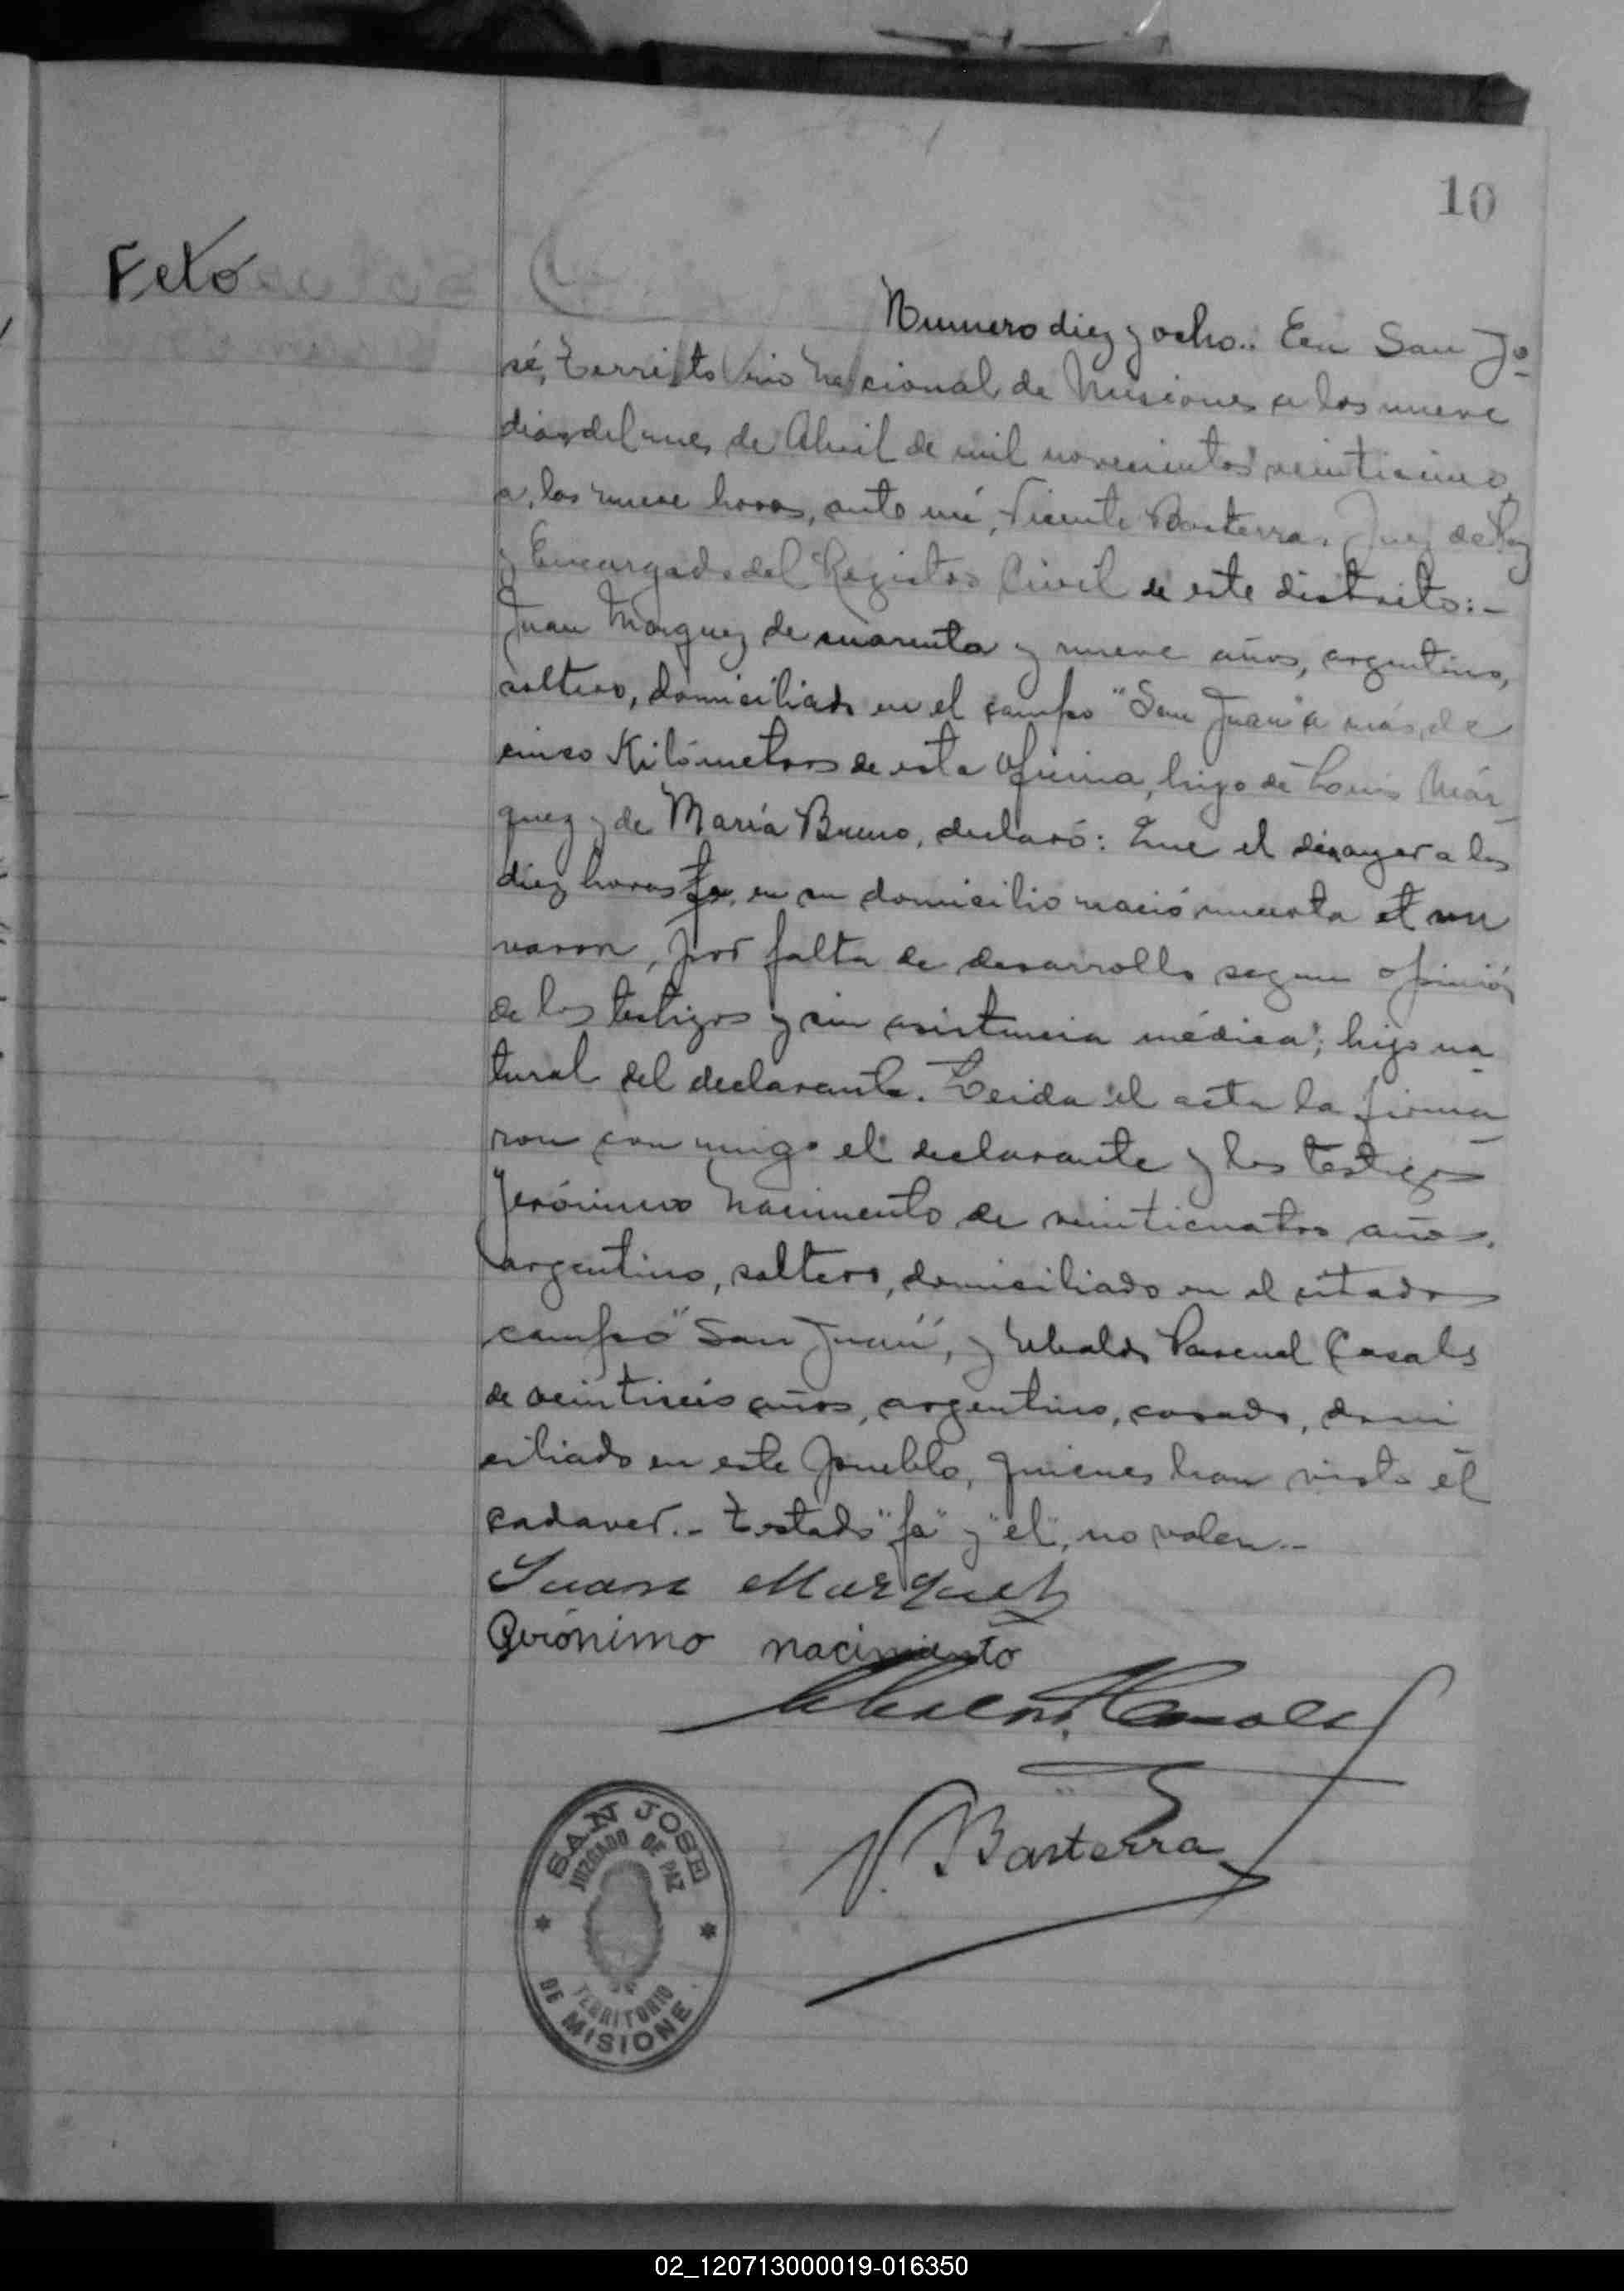 10
Feto
Numero diez y ocho.. En San Jo-
sé, territorio nacional de Misiones a los nueve
dias del mes de Abril de mil novecientos veinticinco,
a las nueve horas, ante mí, Vicente Basterra, Juez de Paz
y Encargado del Registro Civil de este distrito:-
Juan Marquez de cuarenta y nueve años, argentino,
soltero, domiciliado en el campo "San Juan" a más de
cinco Kilómetros de esta Oficina, hijo de Már-
quez y de María Bueno, declaró: Que el dia ayer a las
diez horas fa, en su domicilio nació muerta el un
varon, por falta de desarrollo segun opinión
de los testigos y sin asistencia médica; hijo na-
tural del declarante. Leida el acta la firma-
ron con migo el declarante y los testigos
Jerónimo Nacimiento de veinticuatro años,
argentino, soltero, domiciliado en el citado
campo "San Juan", y Ubaldo Pascual Casals
de veintiseis años, argentino, casado, domi-
ciliado en este pueblo, quienes han visto el
cadaver.- Testado "fa" y "el", no valen.-
Juan Marquez
Gerónimo nacimiento
Ubaldo P. Casals
V. Basterra
SAN JOSE
JUZGADO DE PAZ
TERRITORIO
DE MISIONE
02_120713000019-016350